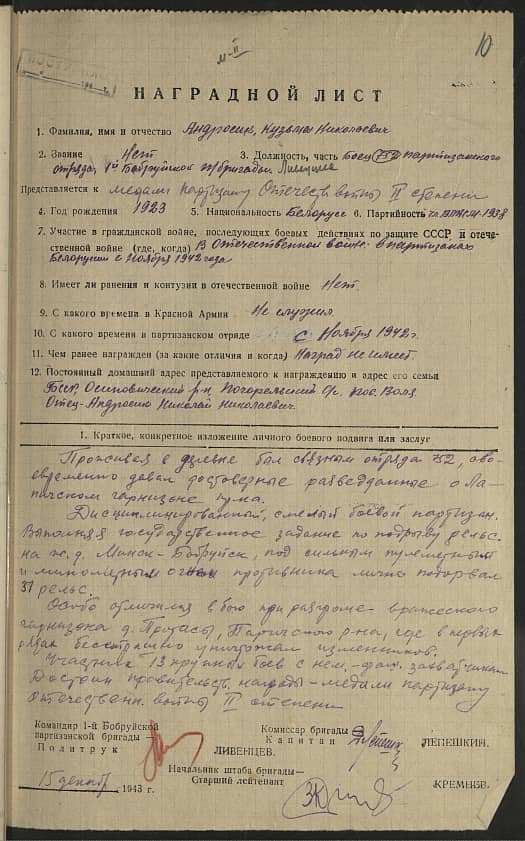 10
м-II
НАГРАДНОЙ ЛИСТ
1. Фамилия, имя и отчество Андросик, Кузьма Николаевич
2. Звание Нет 3. Должность, часть Боец 752 партизанского
отряда, 1й Бобруйской п/бригады Ливенцева
Представляется к медали Партизану Отечеств войны II степени
4. Год рождения 1923 5. Национальность Белорус 6. Партийность чл. ВЛКСМ 1938
7. Участие в гражданской войне, последующих боевых действиях по защите СССР и отече-
ственной войне (где, когда) В Отечественной войне в партизанах
Белорусии с Ноября 1942 года
8. Имеет ли ранения и контузии в отечественной войне Нет.
9. С какого времени в Красной Армии Не служил.
10. С какого времени в партизанском отряде с Ноября 1942 г.
11. Чем ранее награжден (за какие отличия и когда) Наград не имеет.
12. Постоянный домашний адрес представляемого к награждению и адрес его семьи
БССР, Осиповический р-н Погорельский с/с. пос. Воля
Отец-Андросик Николай Николаевич.
I. Краткое, конкретное изложение личного боевого подвига или заслуг
Проживая в деревне был связным отряда 752, сво-
евременно давал достоверные разведданные о Ла-
пичском гарнизоне пр-ка.
Дисциплинированный, смелый боевой партизан.
Выполняя государственное задание по подрыву рельс.
на ж.д. Минск-Бобруйск, под сильным пулеметным
и минометным огнем противника лично подорвал
37 рельс.
Особо отличился в бою при разгроме вражеского
гарнизона д. Протасы, Паричского р-на, где в первых
рядах бесстрашно уничтожал изменников.
Участник 13 крупных боев с нем.-фаш. захватчиками
Достоин правительств. награды-медали партизану
Отечественн. войны II степени
Командир 1-й Бобруйской
партизанской бригады—
Политрук ЛИВЕНЦЕВ.
Комиссар бригады
Капитан ЛЕПЕШКИН.
Начальник штаба бригады—
Старший лейтенант КРЕМНЕВ.
15 декабр 1943 г.